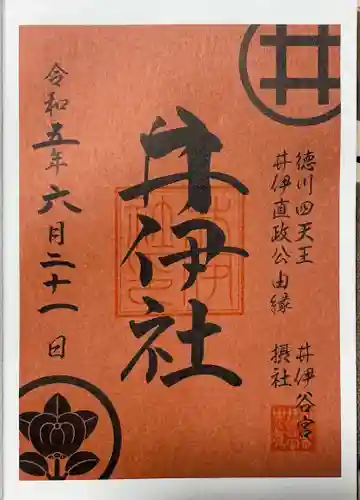 徳川四天王
井伊直政公由縁
井伊谷宮
摂社
井伊社
令和五年六月二十一日